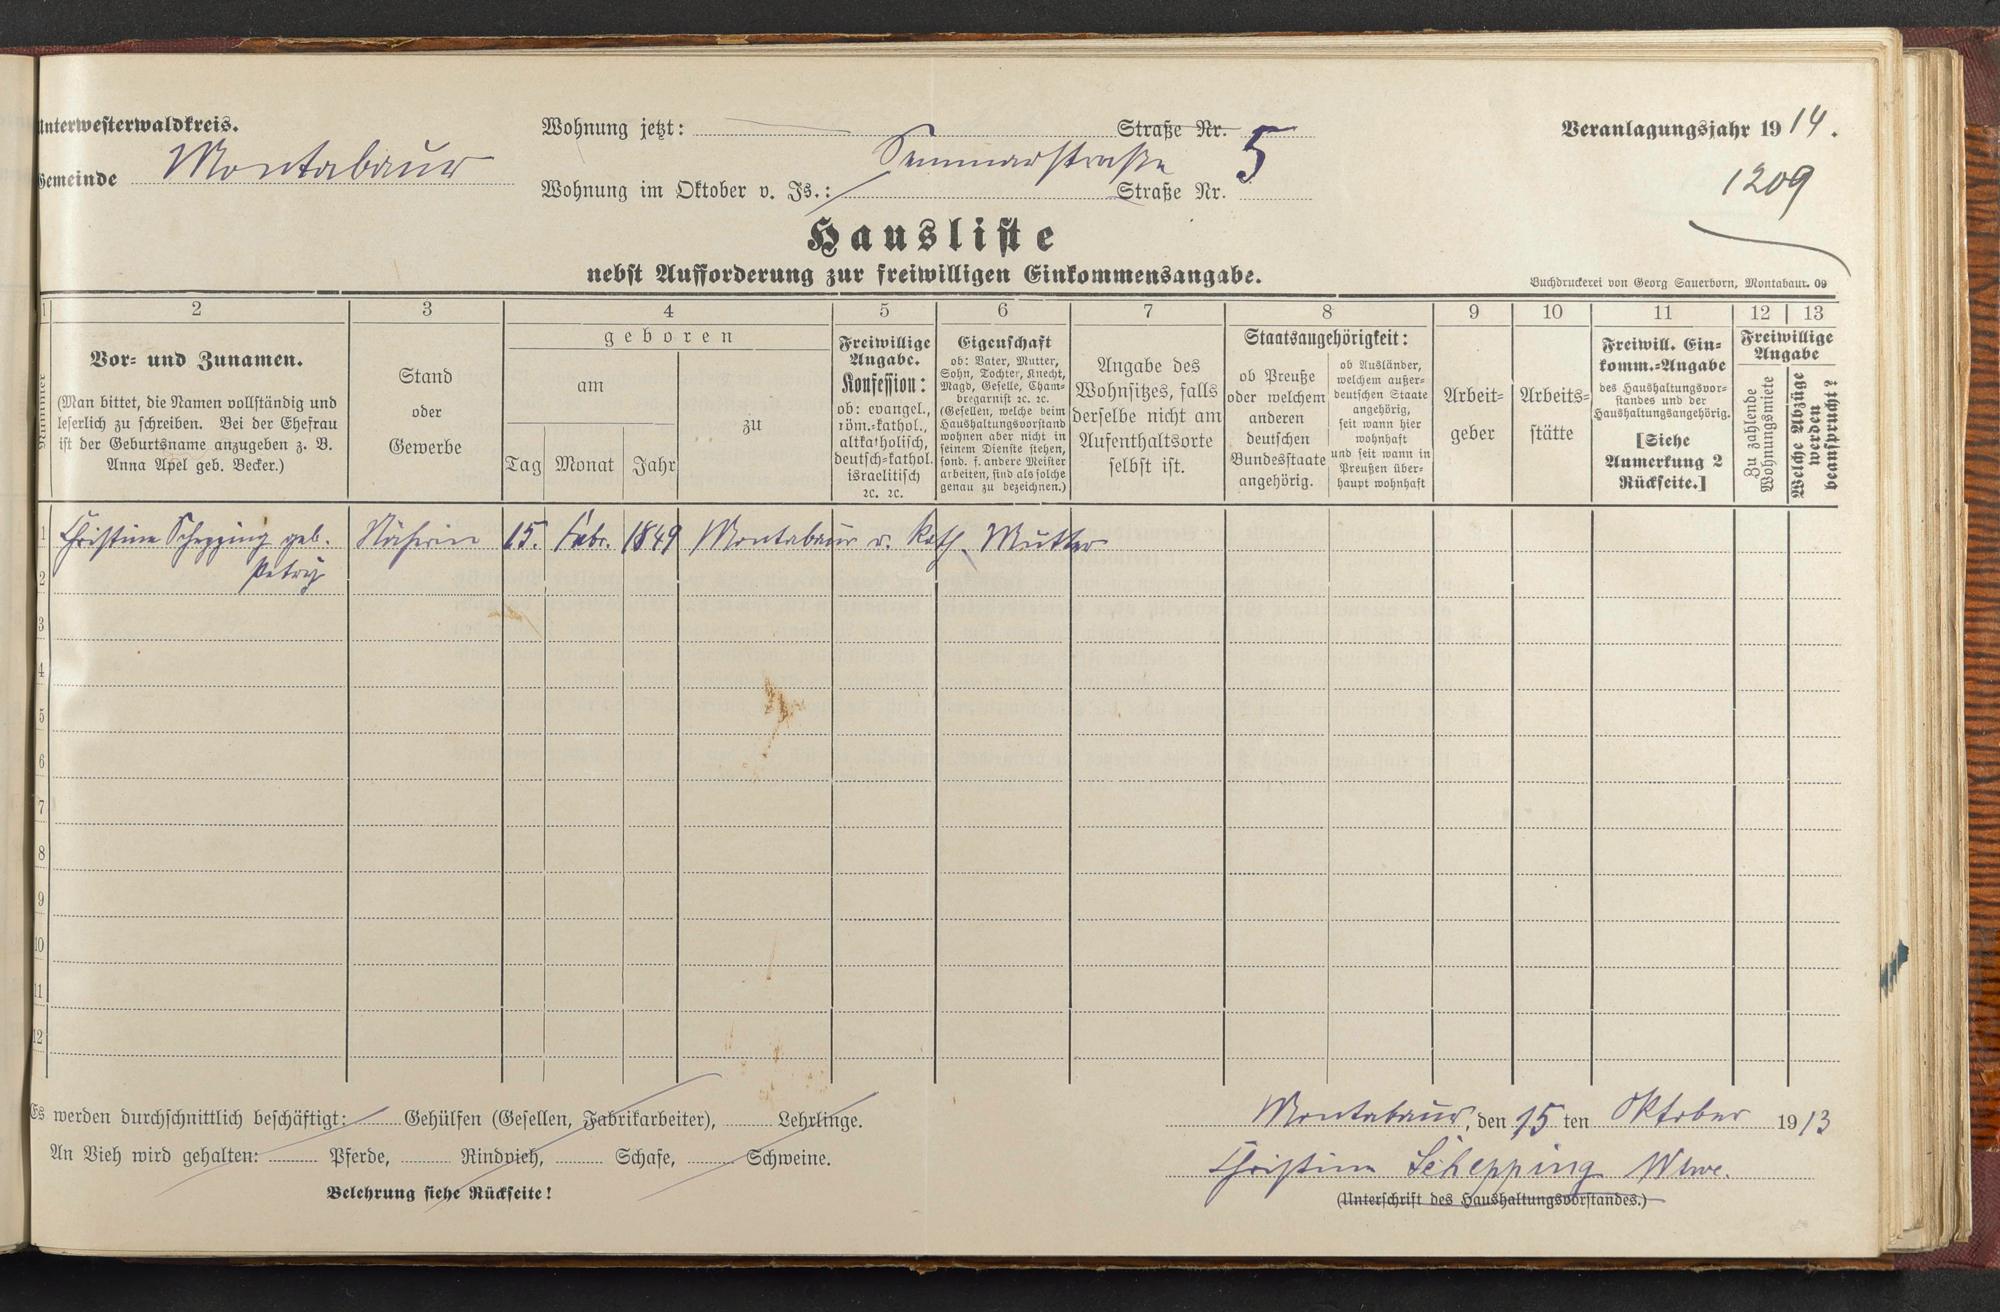 Unterwesterwaldkreis.
Gemeinde Montabaur
Wohnung jetzt: Straße Nr. 5
Wohnung im Oktober v. Js.: Straße Nr.
Veranlagungsjahr 1914.
1209
Hausliste
nebst Aufforderung zur freiwilligen Einkommensangabe.
Buchdruckerei von Georg Sauerborn, Montabaur. 09
1 2 3 4 5 6 7 8 9 10 11 12 13
Nummer
Vor- und Zunamen.
(Man bittet, die Namen vollständig und
leserlich zu schreiben. Bei der Ehefrau
ist der Geburtsname anzugeben z. B.
Anna Apel geb. Becker.)
Stand
oder
Gewerbe
geboren
am
Tag Monat Jahr
zu
Freiwillige
Angabe.
Konfession:
ob: evangel.,
röm.-kathol.,
altkatholisch,
deutsch-kathol.
israelitisch
ꝛc. ꝛc.
Eigenschaft
ob: Vater, Mutter,
Sohn, Tochter, Knecht,
Magd, Geselle, Cham-
bregarnist ꝛc. ꝛc.
(Gesellen, welche beim
Haushaltungsvorstand
wohnen aber nicht in
seinem Dienste stehen,
sond. f. andere Meister
arbeiten, sind als solche
genau zu bezeichnen.)
Angabe des
Wohnsitzes, falls
derselbe nicht am
Aufenthaltsorte
selbst ist.
Staatsangehörigkeit:
ob Preuße
oder welchem
anderen
deutschen
Bundesstaate
angehörig.
ob Ausländer,
welchem außer-
deutschen Staate
angehörig,
seit wann hier
wohnhaft
und seit wann in
Preußen über-
haupt wohnhaft
Arbeit-
geber
Arbeits-
stätte
Freiwill. Ein-
komm.-Angabe
des Haushaltungsvor-
standes und der
Haushaltungsangehörig.
[Siehe
Anmerkung 2
Rückseite.]
Freiwillige
Angabe
Zu zahlende
Wohnungsmiete
Welche Abzüge
werden
beansprucht?
1 Christine Schepping geb. Näherin 15. Febr. 1849 Montabaur v. Kath. Mutter
2 Petry
3
4
5
6
7
8
9
10
11
12
Es werden durchschnittlich beschäftigt: Gehülfen (Gesellen, Fabrikarbeiter), Lehrlinge.
An Vieh wird gehalten: Pferde, Rindvieh, Schafe, Schweine.
Belehrung siehe Rückseite!
Montabaur, den 15 ten Oktober 1913
Christine Schepping Wtwe.
(Unterschrift des Haushaltungsvorstandes.)